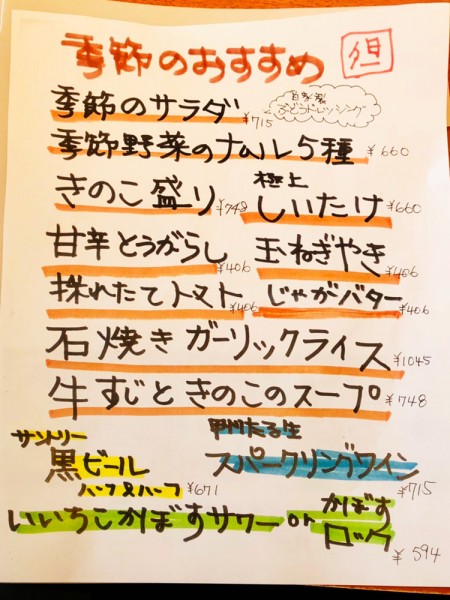 季節のおすすめ 但
季節のサラダ ¥715 自家製ぶどうドレッシング
季節野菜のナムル5種 ¥660
きのこ盛り ¥748 極上しいたけ ¥660
甘辛とうがらし ¥406 玉ねぎやき ¥406
採れたてトマト ¥406 じゃがバター ¥406
石焼きガーリックライス ¥1045
牛すじときのこのスープ ¥748
サントリー
黒ビール
ハーフ&ハーフ ¥671
甲州たる生
スパークリングワイン ¥715
いいちこかぼすサワー or かぼすロック
¥594